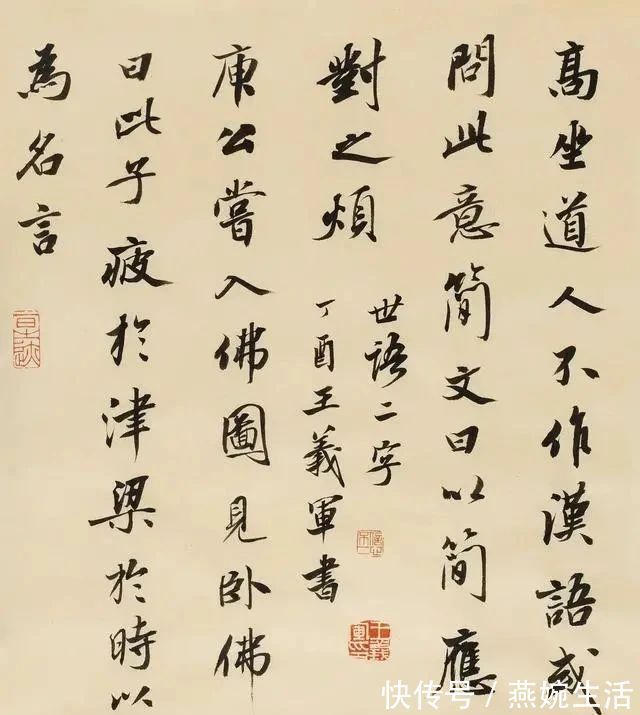 高坐道人不作漢語或
問此意簡文曰以簡應
對之煩
世語二字
丁酉王義軍書
庾公嘗入佛圖見卧佛
曰此子疲於津梁於時以
為名言
快传号/燕婉生活